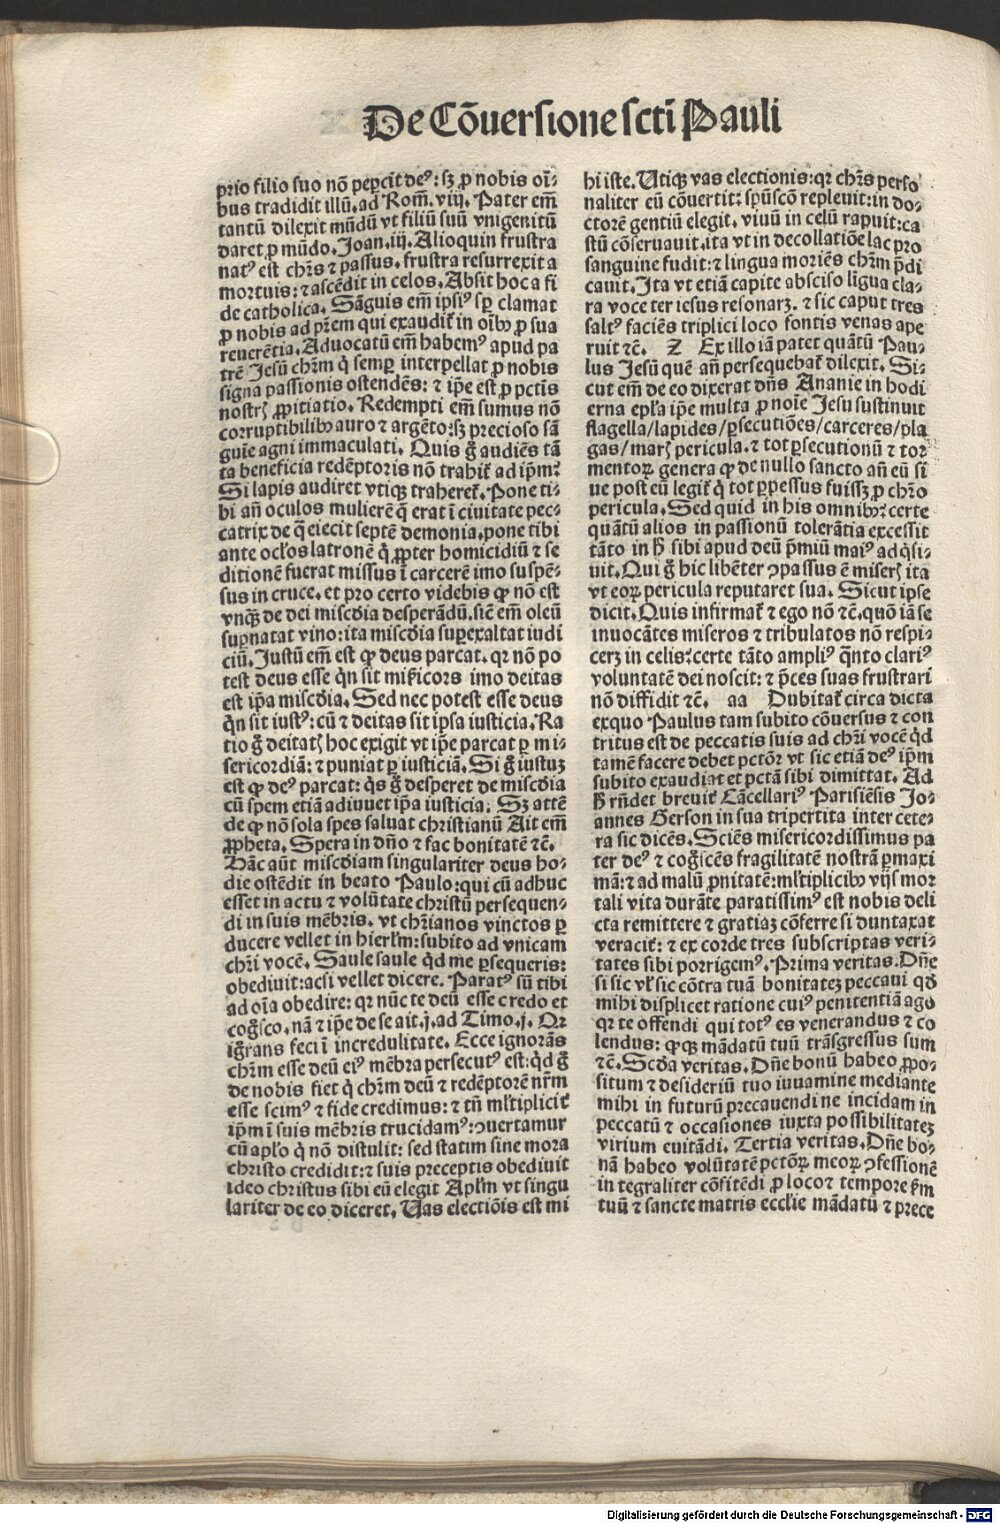 De Cōuersione scti Pauli
prio filio suo nō peꝑcit deꝰ: sꝫ ꝓ nobis oīs
bus tradidit illū. ad Rom̄. viij. Pater em̄
tantū dilexit mūdū vt filiū suū vnigenitū
daret ꝓ mūdo. Joan. iij. Alioquin frustra
natꝰ est chr̄s ⁊ passus. frustra resurrexit a
mortuis: ⁊ ascēdit in celos. Absit hoc a fi
de catholica. Sāguis em̄ ipsiꝰ sꝑ clamat
ꝓ nobis ad pr̄em qui exaudit̄ in oīb ꝓ sua
reuerētia. Aduocatū em̄ habemꝰ apud pa
trē Jesū chr̄m q̇ semꝑ interpellat ꝓ nobis
signa passionis ostendēs: ⁊ ip̄e est ꝓ pctīs
nostrꝭ ꝓpitiatio. Redempti em̄ sumus nō
corruptibilib auro ⁊ argēto: sꝫ precioso sā
guīe agni immaculati. Quis g̊ audiēs tā
ta beneficia redēptoris nō trahit̄ ad ip̄m?
Si lapis audiret vtiqꝫ traheret̄. Pone ti⸗
bi añ oculos mulierē q̄ erat ī ciuitate pec⸗
catrix de q̄ eiecit septē demonia. pone tibi
ante ocl'os latronē q̇ ꝓpter homicidiū ⁊ se
ditionē fuerat missus ī carcerē imo suspē⸗
sus in cruce. et pro certo videbis ꝙ nō est
vnqꝫ de dei misc̄dia desperādū. sic̄ em̄ oleū
suꝑnatat vino: ita misc̄dia suꝑexaltat iudi
ciū. Justū em̄ est ꝙ deus parcat. qꝛ nō po
test deus esse q̇n sit mīcors imo deitas
est ip̄a misc̄dia. Sed nec potest esse deus
q̇n sit iustꝰ: cū ⁊ deitas sit ipsa iusticia. Ra
tio g̊ deitatꝭ hoc exigit vt ip̄e parcat ꝑ mi⸗
sericordiā: ⁊ puniat ꝑ iusticiā. Si g̊ iustuꝫ
est ꝙ deꝰ parcat: q̇s g̊ desperet de misc̄dia
cū spem etiā adiuuet ip̄a iusticia. Sꝫ attē
de ꝙ nō sola spes saluat christianū Ait em̄
ꝓpheta. Spera in dn̄o ⁊ fac bonitatē ⁊c̄.
Hāc aūt misc̄diam singulariter deus ho⸗
die ostēdit in beato Paulo: qui cū adhuc
esset in actu ⁊ volūtate christū persequen⸗
di in suis mēbris. vt chr̄ianos vinctos ꝑ
ducere vellet in hierl'm: subito ad vnicam
chr̄i vocē. Saule saule q̇d me ꝑsequeris:
obediuit: acsi vellet dicere. Paratꝰ sū tibi
ad oīa obedire: qꝛ nūc te deū esse credo et
cog̊sco. nā ⁊ ip̄e de se ait. j. ad Timo. j. Qꝛ
ig̊rans feci ī incredulitate. Ecce ignorās
chr̄m esse deū eiꝰ mēbra persecutꝰ est: q̇d g̊
de nobis fiet q̇ chr̄m deū ⁊ redēptorē nr̄m
esse scimꝰ ⁊ fide credimus: ⁊ tn̄ ml'tiplicit̄
ip̄m ī suis mēbris trucidamꝰ: ꝯuertamur
cū apl'o q̇ nō distulit: sed statim sine mora
christo credidit: ⁊ suis preceptis obediuit
ideo christus sibi eū elegit Apl'm vt singu
lariter de eo diceret. Uas electiōis est mi
hi iste. Utiqꝫ vas electionis: qꝛ chr̄s perso
naliter eū cōuertit: spūscō repleuit: in do⸗
ctorē gentiū elegit. viuū in celū rapuit: ca
stū cōseruauit. ita vt in decollatiōe lac pro
sanguine fudit: ⁊ lingua moriēs chr̄m p̄di
cauit. Ita vt etiā capite absciso līgua cla⸗
ra voce ter iesus resonarꝫ. ⁊ sic caput tres
saltꝰ faciēs triplici loco fontis venas ape
ruit ⁊c̄. Z Ex illo iā patet quātū Pau⸗
lus Jesū quē añ persequebat̄ dilexit. Si⸗
cut em̄ de eo dixerat dn̄s Ananie in hodi
erna epl'a ip̄e multa ꝓ noīe Jesu sustinuit
flagella/lapides/ꝑsecutiōes/carceres/pla
gas/marꝭ pericula. ⁊ tot ꝑsecutionū ⁊ tor
mentoꝝ genera ꝙ de nullo sancto añ eū si
ue post eū legit̄ q̇ tot ꝑpessus fuissꝫ ꝓ chr̄o
pericula. Sed quid in his omnib? certe
quātū alios in passionū tolerātia excessit
tāto in h̄ sibi apud deū p̄miū maiꝰ adq̇si⸗
uit. Qui g̊ hic libēter ꝯpassus ē miserꝭ ita
vt eoꝝ pericula reputaret sua. Sicut ipse
dicit. Quis infirmat̄ ⁊ ego nō ⁊c̄. quō iā se
inuocātes miseros ⁊ tribulatos nō respi⸗
cerꝫ in celis? certe tāto ampliꝰ q̄nto clariꝰ
voluntatē dei noscit: ⁊ p̄ces suas frustrari
nō diffidit ⁊c̄. aa Dubitat̄ circa dicta
exquo Paulus tam subito cōuersus ⁊ con
tritus est de peccatis suis ad chr̄i vocē q̇d
tamē facere debet pctōr vt sic etiā deꝰ ip̄m
subito exaudiat et pctā sibi dimittat. Ad
h̄ rn̄det breuit̄ Cācellariꝰ Parisiēsis Jo⸗
annes Gerson in sua tripertita inter cete⸗
ra sic dicēs. Sciēs misericordissimus pa
ter deꝰ ⁊ cog̊scēs fragilitatē nostrā ꝑmaxi
mā: ⁊ ad malū ꝓnitatē: ml'tiplicib vijs mor
tali vita durāte paratissimꝰ est nobis deli
cta remittere ⁊ gratiaꝫ cōferre si duntaxat
veracit̄: ⁊ ex corde tres subscriptas veri⸗
tates sibi porrigemꝰ. Prima veritas. Dn̄e
si sic vl' sic cōtra tuā bonitateꝫ peccaui qd̄
mihi displicet ratione cuiꝰ penitentiā ago
qꝛ te offendi qui totꝰ es venerandus ⁊ co
lendus: ꝙqꝫ mādatū tuū trāsgressus sum
⁊c̄. Scd̄a veritas. Dn̄e bonū habeo ꝓpo⸗
situm ⁊ desideriū tuo iuuamine mediante
mihi in futurū precauendi ne incidam in
peccatū ⁊ occasiones iuxta possibilitateꝫ
virium euitādi. Tertia veritas. Dn̄e bo⸗
nā habeo volūtatē pctōꝝ meoꝝ ꝯfessionē
in tegraliter cōfitēdi ꝓ loco ⁊ tempore s̄m
tuū ⁊ sancte matris ecclīe mādatū ⁊ prece
Digitalisierung gefördert durch die Deutsche Forschungsgemeinschaft - DFG